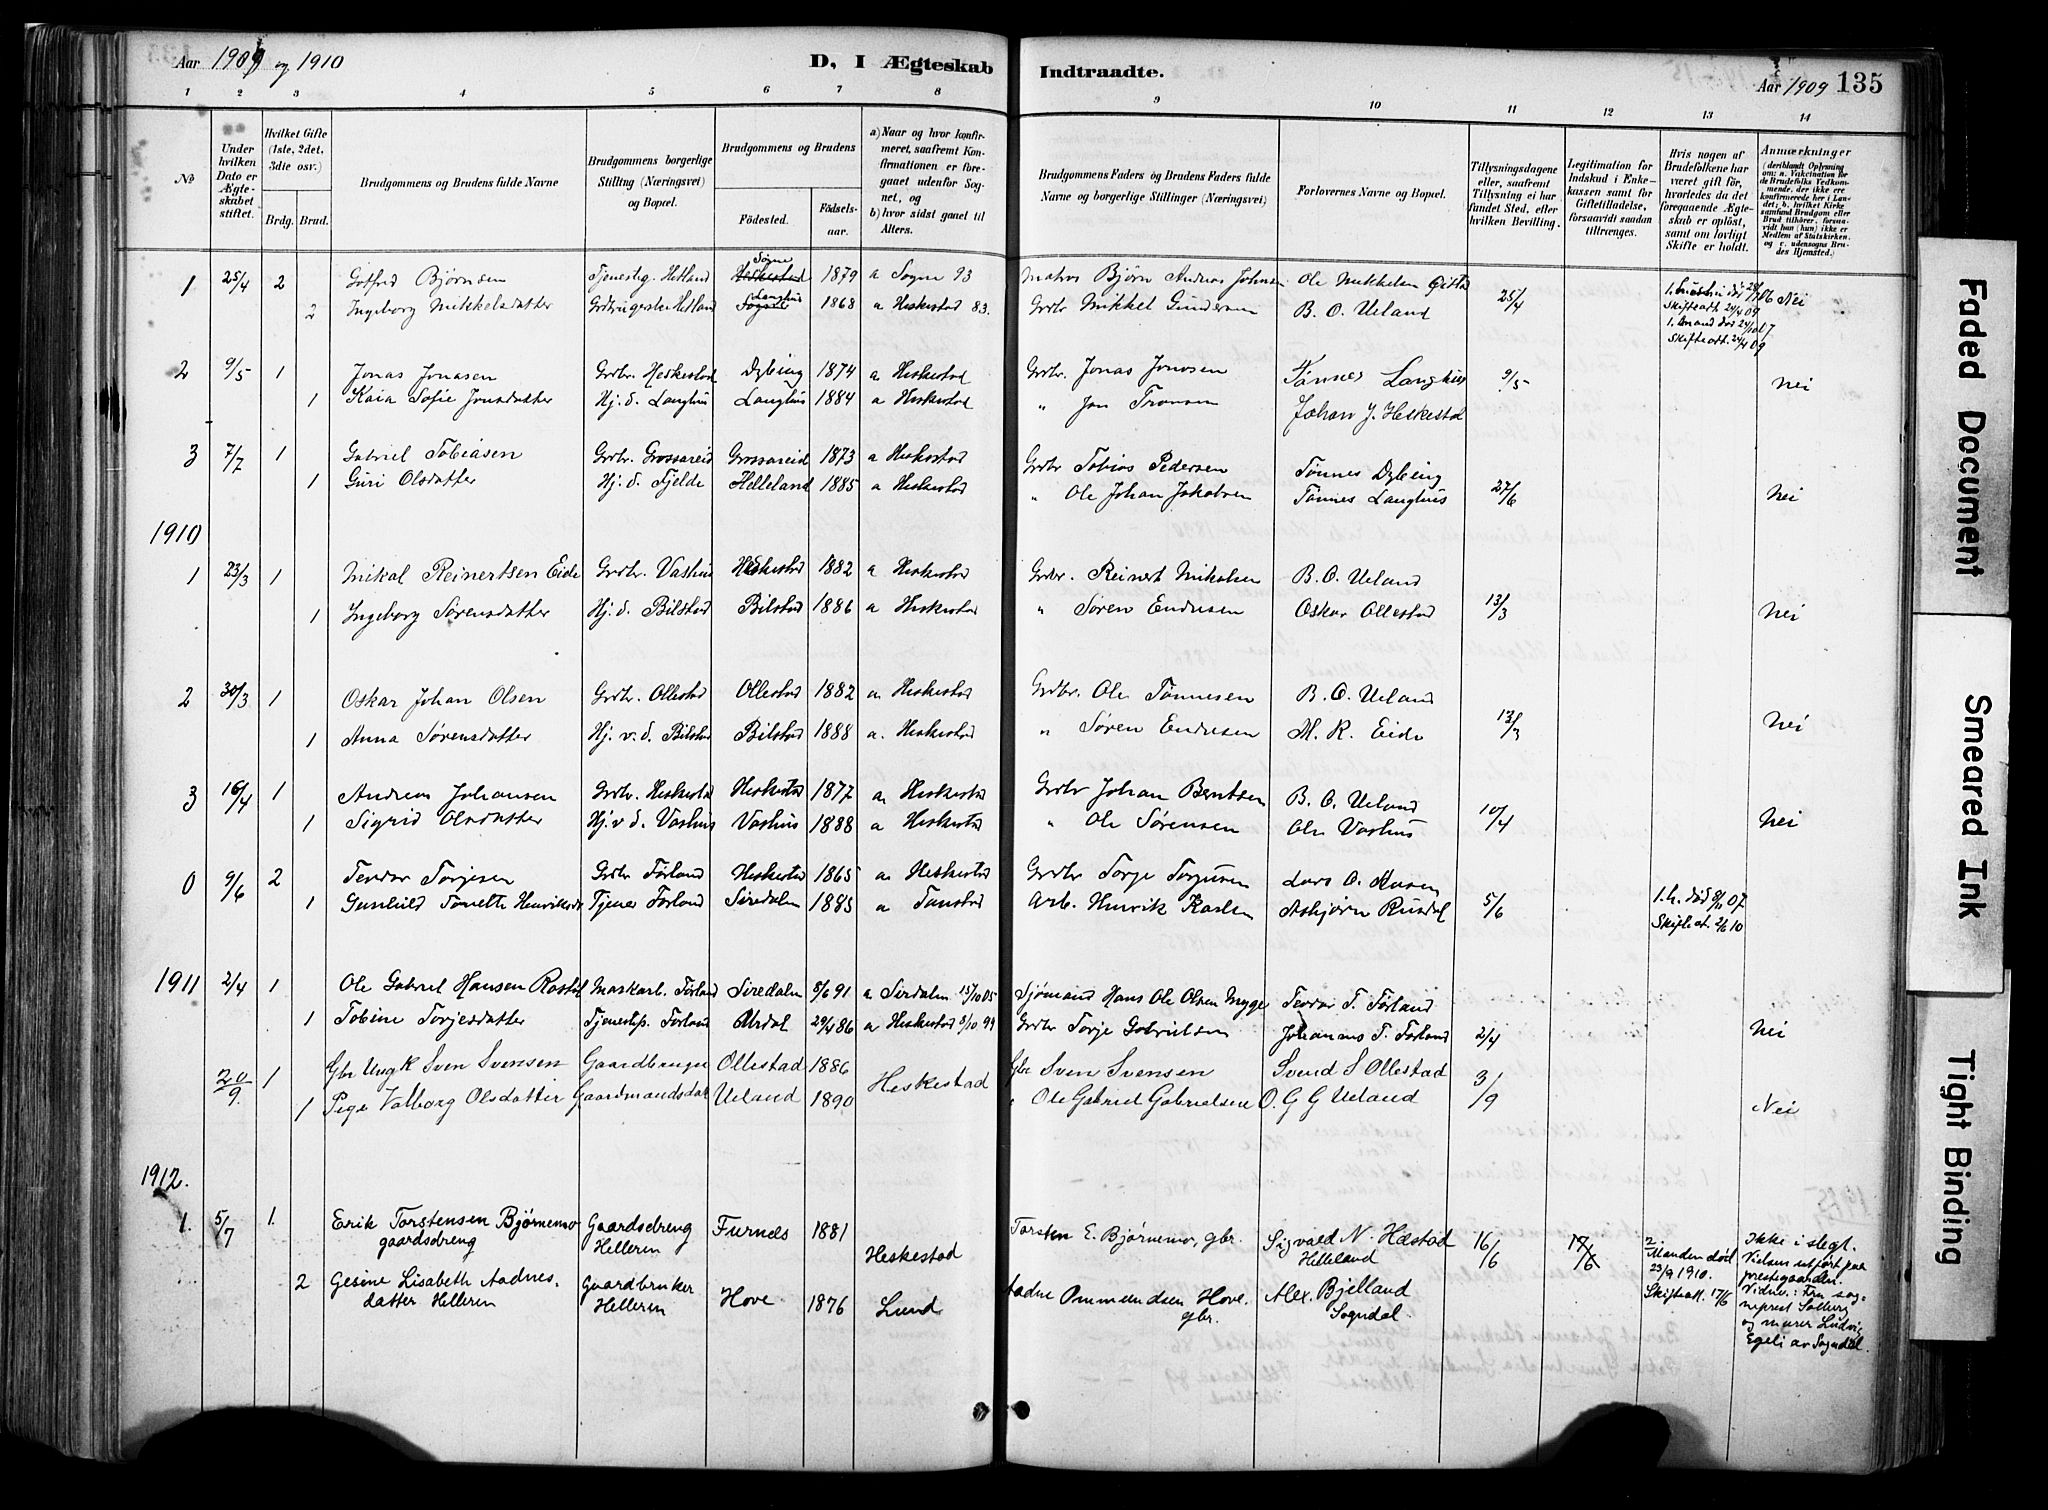 Aar 1909 og 1910
D, I Ægteskab Indtraadte.
Aar 1909 135
1 2 3 4 5 6 7 8 9 10 11 12 13 14
No
Under hvilken Dato er Ægteskabet stiftet.
Hvilket Gifte (1ste, 2det, 3die osv.)
Brdg. Brud.
Brudgommens og Brudens fulde Navne
Brudgommens borgerlige Stilling (Næringsvei) og Bopæl.
Brudgommens og Brudens
Fødested. Fødselsaar.
a) Naar og hvor konfirmeret, saafremt Konfirmationen er foregaaet udenfor Sognet, og
b) hvor sidst gaaet til Alters.
Brudgommens Faders og Brudens Faders fulde Navne og borgerlige Stillinger (Næringsvei)
Forlovernes Navne og Bopæl.
Tillysningsdagene eller, saafremt Tillysning ei har fundet Sted, efter hvilken Bevilling.
Legitimation for Indskud i Enkekassen samt for Giftetilladelse, forsaavidt saadan tiltrænges.
Hvis nogen af Brudefolkene har været gift før, hvorledes da det foregaaende Ægteskab er opløst, samt om lovligt Skifte er holdt.
Anmærkninger
(deriblandt Oplysning om: a. Vakcination for de Brudefolks Vedkommende, der ikke ere konfirmerede her i Landet; b. hvilket Kirkesamfund Brudgom eller Brud tilhører, forsaavidt han (hun) ikke er Medlem af Statskirken, og c. udensogns Brudes Hjemsted.)
1 25/4 2 Gotfred Bjørnsen Tjenestg. Hetland Sogne 1879 a Sogne 93 Matros Bjørn Andreas Johnsen Ole Mikkelsen 25/4 Nei
2 Ingeborg Mikkelsdatter Hetland Langhus 1868 a Heskestad 83. Grdbr Mikkel Gundersen B. O. Ueland
2 9/5 1 Jonas Jonasen Grdbr. Heskestad Dybing 1874 a Heskestad Grdbr. Jonas Jonasen Tønnes Langhus 9/5 Nei
1 Kaia Sofie Jonsdatter Hj. d. Langhus Langhus 1884 a Heskestad " Jon Tronsen Johan J. Heskestad
3 7/7 1 Gabriel Tobiasen Grdbr. Grossareid Grossareid 1873 a Heskestad Grdbr Tobias Pedersen Tønnes Dybing 27/6
1 Guri Olsdatter Hj. d. Fjelde Helleland 1885 a Heskestad " Ole Johan Jakobsen Tønnes Langhus Nei
1910
1 23/3 1 Mikal Reinertsen Eide Grdbr. Vashus Heskestad 1882 a Heskestad Grdbr. Reinert Mikalsen B. O. Ueland
1 Ingeborg Sørensdatter Hj. d. Bilstad Bilstad 1886 a Heskestad " Søren Endresen Oskar Ollestad 13/3 Nei
2 30/3 1 Oskar Johan Olsen Grdbr. Ollestad Ollestad 1882 a. Heskestad Grdbr. Ole Tønnesen B. O. Ueland
1 Anna Sørensdatter Hj. v. d. Bilstad Bilstad 1888 a. Heskestad " Søren Endresen M. R. Eide 13/3 Nei
3 16/4 1 Andreas Johansen Grdbr. Heskestad Heskestad 1877 a. Heskestad Grdbr Johan Berntsen B. O. Ueland 10/4
1 Sigrid Olsdatter Hj. v d. Vashus Vashus 1888 a Heskestad " Ole Sørensen Ole Vashus Nei
0 9/6 2 Teodor Torjesen Grdbr Førland Heskestad 1865 a. Heskestad Grdbr Torje Torjusen Lars O. 5/6 1. h. død 8/11 07
1 Gunhild Tonette Henriksdt Tjener Førland Siredalen 1885 a Tonstad Arb. Henrik Karlsen Asbjørn Rusdal Skifteat. 2/6 10
1911 2/4 1 Ole Gabriel Hansen Maskarb. Førland Siredalen 5/6 91 a Sirdalen 15/10 05 Sjømand Hans Ole Olsen Teodor T. Førland
1 Tobine Torjesdatter Tjenestep. Førland 29/4 86 a Heskestad 8/10 99 Grdbr Torje Gabrielsen Johannes T. Førland 2/4 Nei
20/9 1 Gbr Ungk Sven Svensen Gaardbruger Ollestad 1886 Heskestad Gbr Sven Svensen Svend S Ollestad 3/9
1 Pige Valborg Olsdatter Gaardmandsdat Ueland 1890 " Ole Gabriel Gabrielsen O. G G Ueland Nei
1912.
1. 5/7 1. Erik Torstensen Bjørnemo gaardsdreng Gaardsdreng Helleren Furnes 1881 Heskestad Torsten E. Bjørnemo, gbr. Sigvald N. Hæstad Helleland 16/6 17/6 2. Manden død 23/9 1910. Skifteatt. 17/6
2 Gesine Lisabeth Aadnesdatter Helleren Gaardbruker Helleren Hove 1876 Lund Aadne Ommundsen Hove. gbr. Alex. Bjelland Sogndal.
Ikke i slegt. Vielsen utført paa prestegaarden. Vidner: Fru sogneprest Solberg og murer Ludvig Egeli av Sogndal.
Faded Document
Smeared Ink
Tight Binding